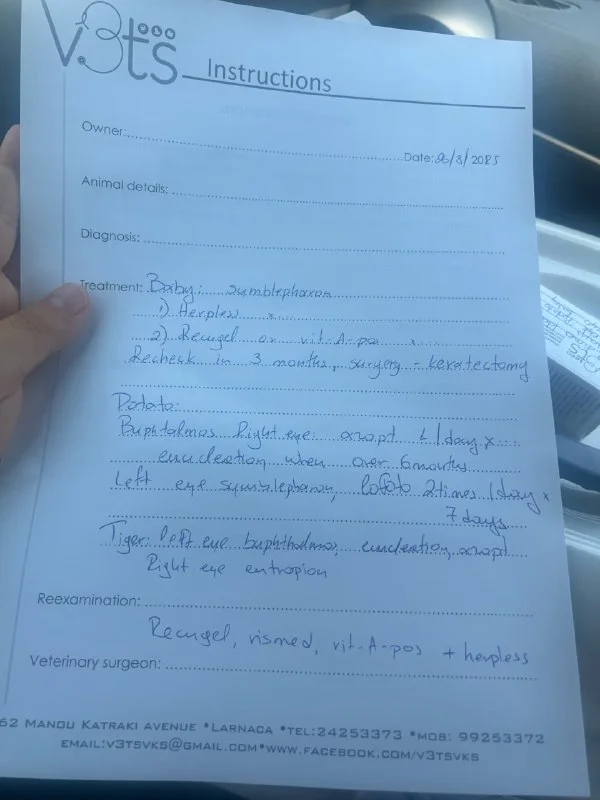 V3ts Instructions
Owner: Date: 26/8/2025
Animal details:
Diagnosis:
Treatment: Baby: sumblepharon
1) Herplex x
2) Recugel or vit-A-pos x
Recheck in 3 months, surgery - keratectomy
Potato:
Buphtalmos Right eye: azopt 1/day x
enucleation when over 6 months
Left eye symblepharon, Lofoto 2 times/day x
7 days
Tiger: left eye buphthalmos, enucleation, azopt
Right eye entropion
Reexamination:
Recugel, vismed, vit-A-pos + herpless
Veterinary surgeon:
62 MANOU KATRAKI AVENUE *LARNACA *TEL:24253373 *MOB: 99253372
EMAIL:V3TSVKS@GMAIL.COM*WWW.FACEBOOK.COM/V3TSVKS